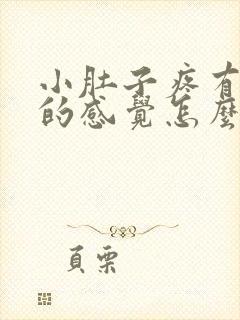 小肚子疼有
的感覺怎麼
頁栗